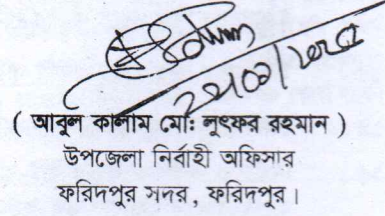 ( আবুল কালাম মোঃ লুৎফর রহমান )
উপজেলা নির্বাহী অফিসার
ফরিদপুর সদর, ফরিদপুর।